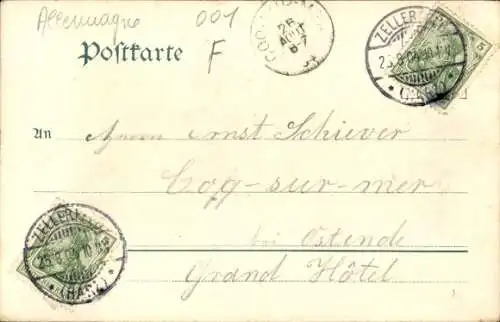 Allemagne 001
F
Postkarte
26
AOUT
6-7
ZELLERFELD
* (HARZ) *
5
An Herrn Ernst Schiever
Coq-sur-mer
bei Ostende
Grand Hôtel
ZELLERFELD
* (HARZ) *